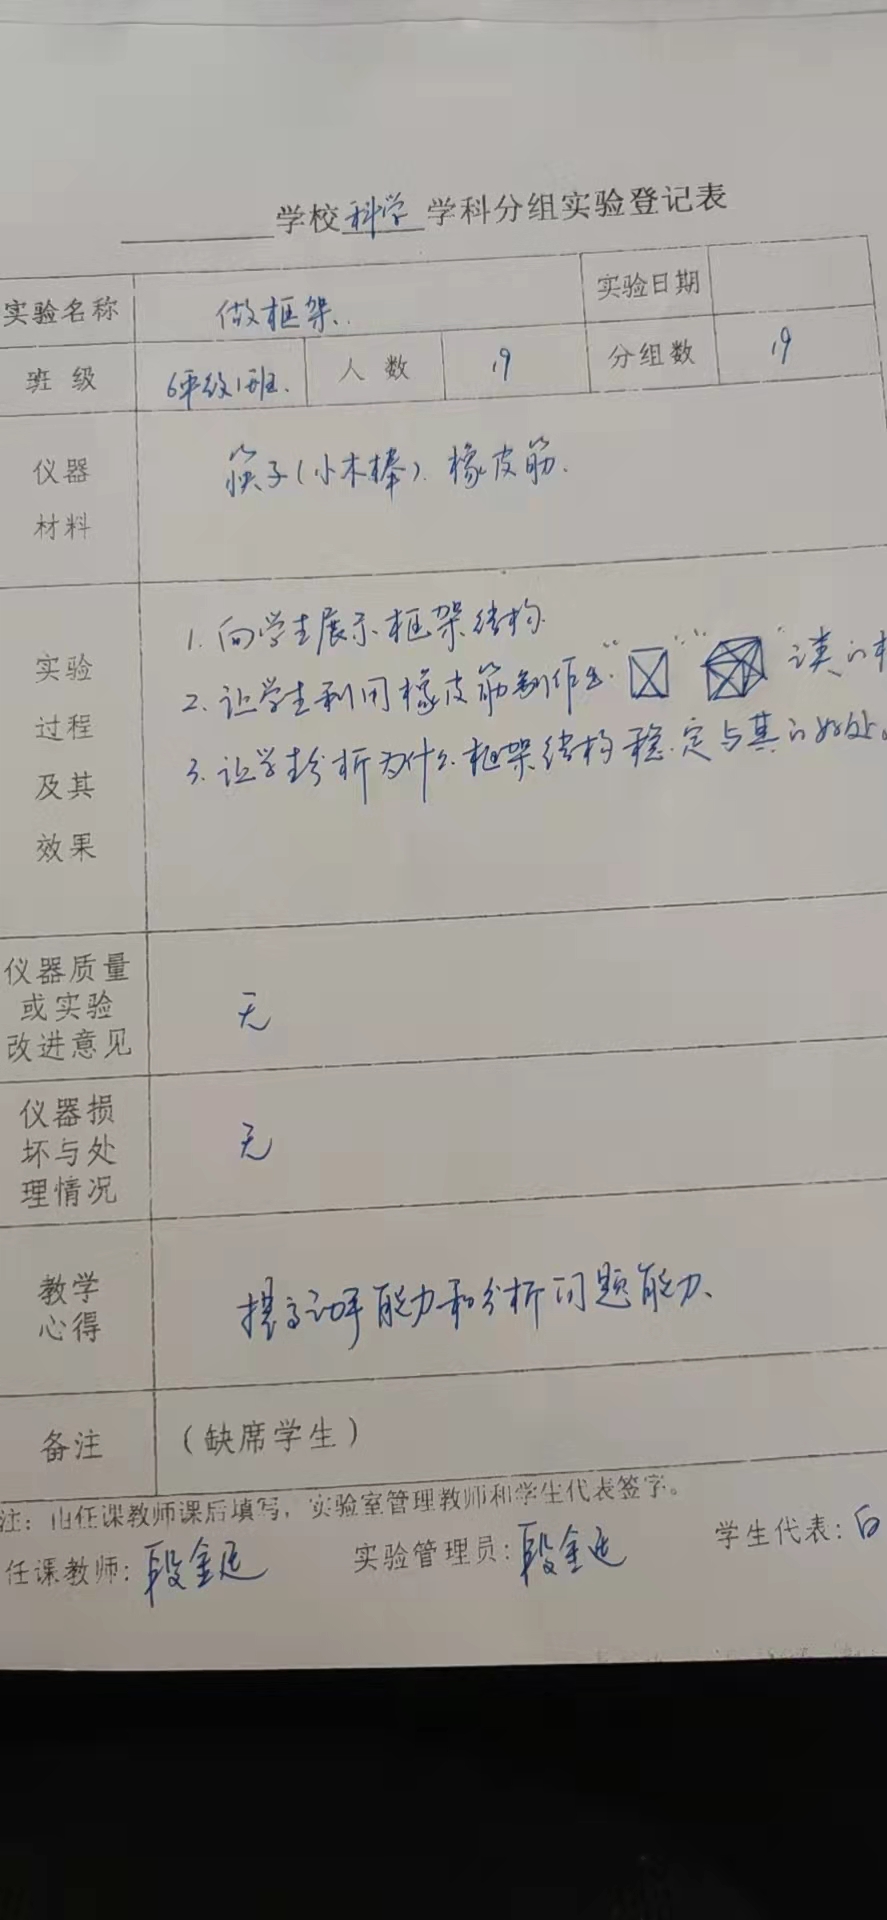 学校科学学科分组实验登记表
实验名称 做框架 实验日期
班 级 6年级1班. 人 数 19 分组数 19
仪器
材料
筷子(小木棒). 橡皮筋.
实验
过程
及其
效果
1. 向学生展示框架结构
2. 让学生利用橡皮筋制作出“ ”“ ”之类的
3. 让学生分析为什么框架结构稳定与其的好处。
仪器质量
或实验
改进意见
无
仪器损
坏与处
理情况
无
教学
心得
提高动手能力和分析问题能力、
备注 (缺席学生)
注：由任课教师课后填写，实验室管理教师和学生代表签字。
任课教师: 段金廷 实验管理员: 段金廷 学生代表: 白